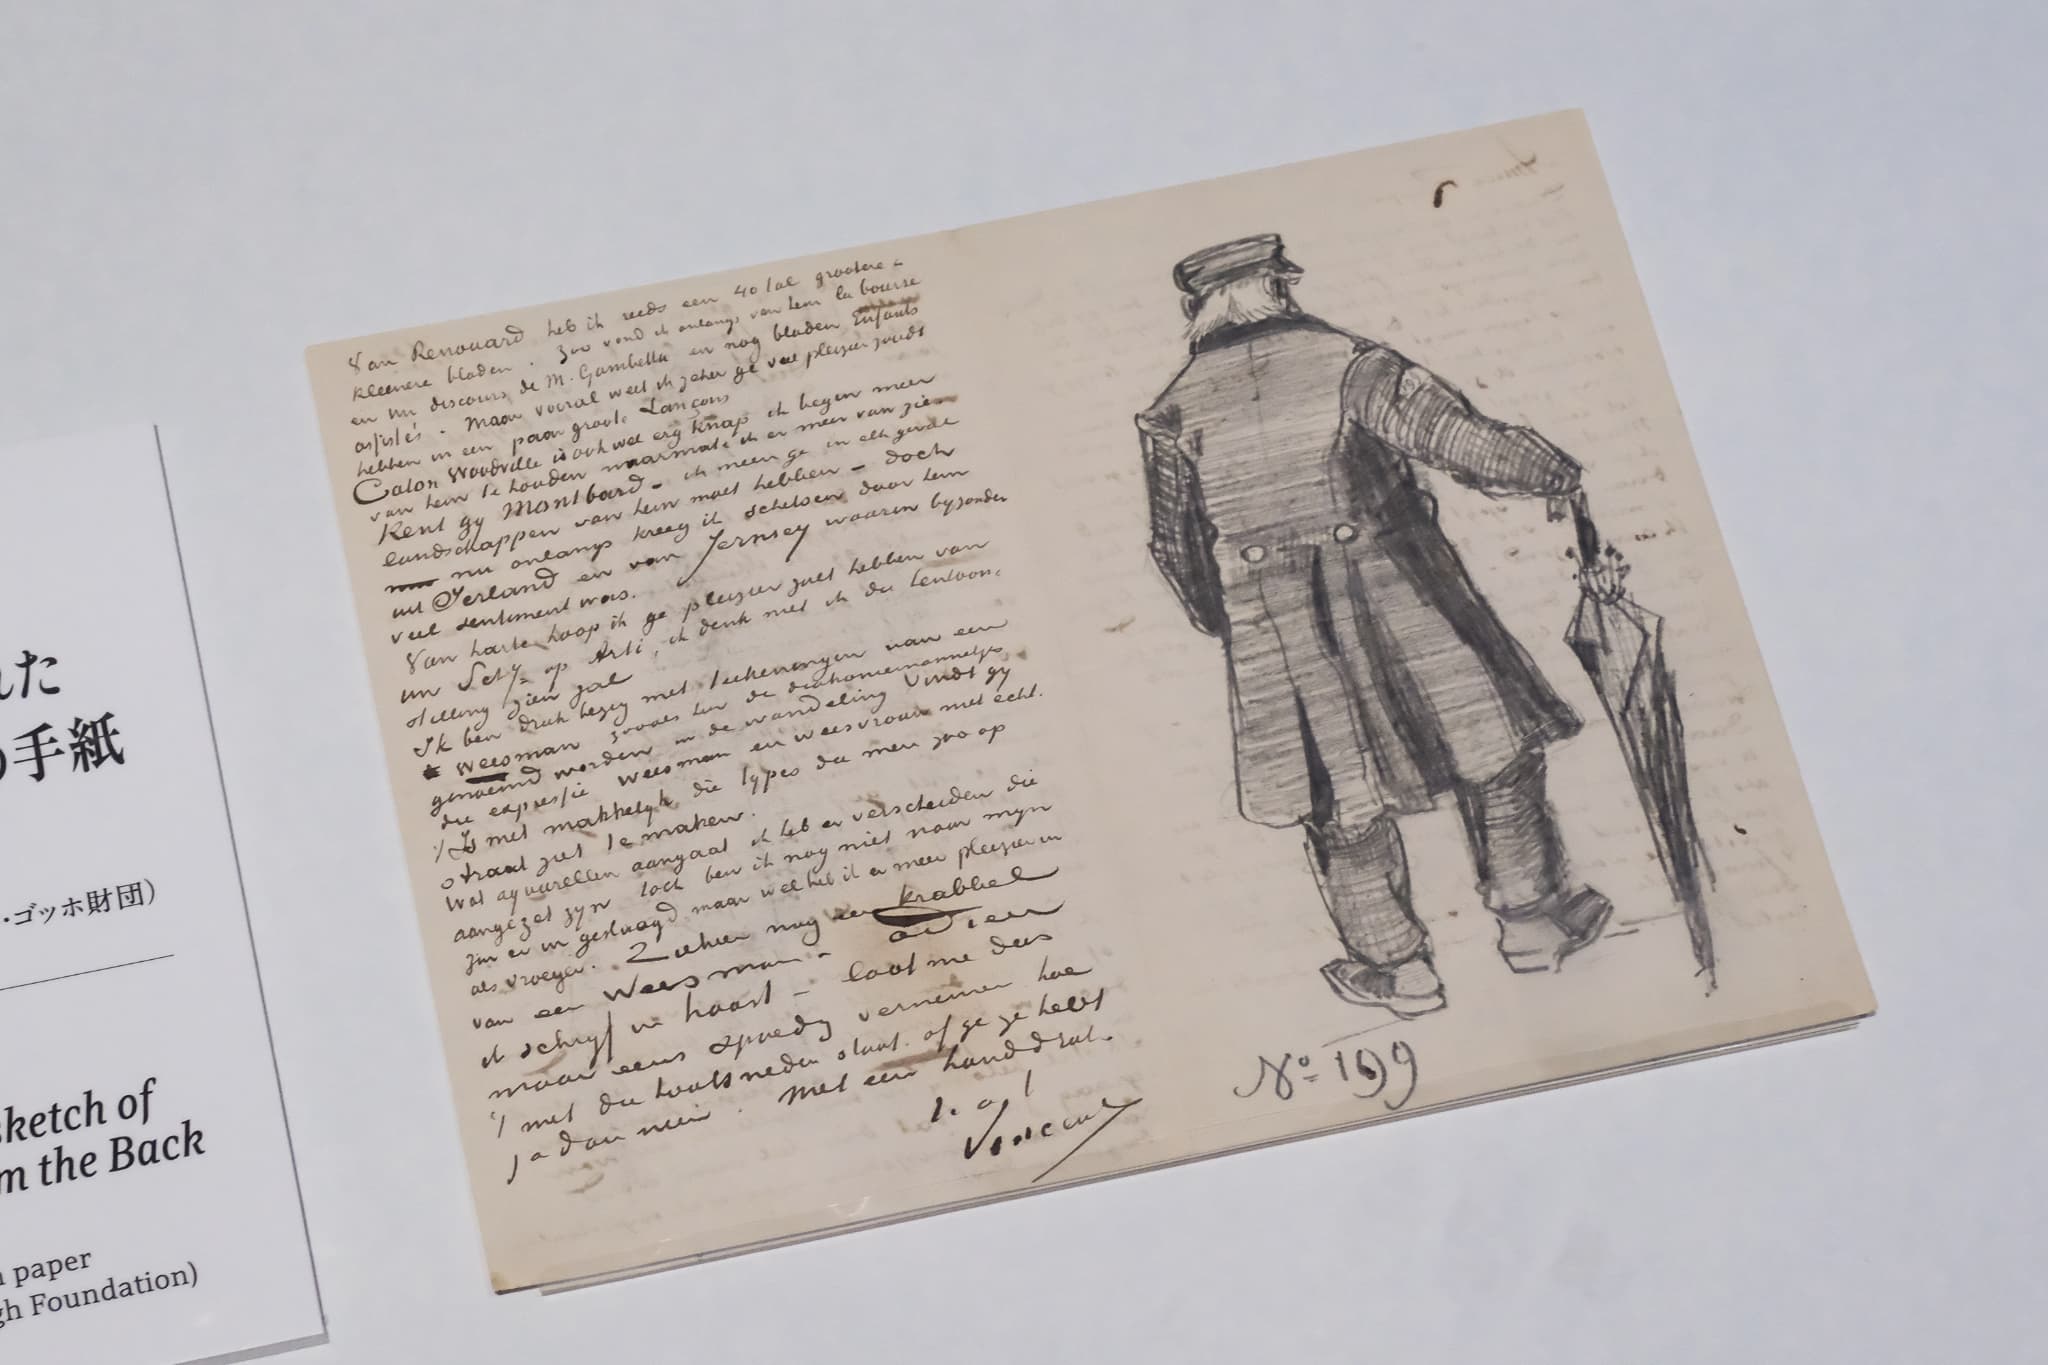 れた
の手紙
・ゴッホ財団)
sketch of
m the Back
n paper
gh Foundation)
Van Renouard heb ik reeds een 40tal grootere &
kleinere bladen. Zoo vond ik onlangs van hem la bourse
en nu discours de M. Gambetta en nog bladen Enfants
assistés. Maar vooral weet ik zeker ge veel pleizier zoudt
hebben in een paar groote Lançons
Caton Woodville is ook wel erg knap ik begin meer
van hem te houden naarmate ik er meer van zie.
Kent gy Montbard - ik meen ge in elk geval
landschappen van hem moet hebben - doch
nu onlangs kreeg ik schetsen door hem
uit Ierland en van Jersey waarin byzonder
veel sentiment was.
Van harte hoop ik ge pleizier zult hebben van
uw op Arti, ik denk niet ik die tentoon-
stelling zien zal
Ik ben druk bezig met teekeningen van een
weesman zooals hier de diakoniemannetjes
genoemd worden in de wandeling Vindt gy
die expressie weesman en weesvrouw niet echt.
't Is niet makkelyk die types die men zoo op
straat ziet te maken.
Wat aquarellen aangaat ik heb er verscheiden die
aangezet zyn toch ben ik nog niet naar myn
zin er in geslaagd maar wel heb ik er meer pleizier in
als vroeger. Ziehier nog een krabbel
van een Weesman - adieu
ik schryf in haast - laat me dus
maar eens spoedig vernemen hoe
't met die houtsneden staat. of ge ze hebt
ja dan neen. Met een handdruk.
t. à t
Vincent
No 199